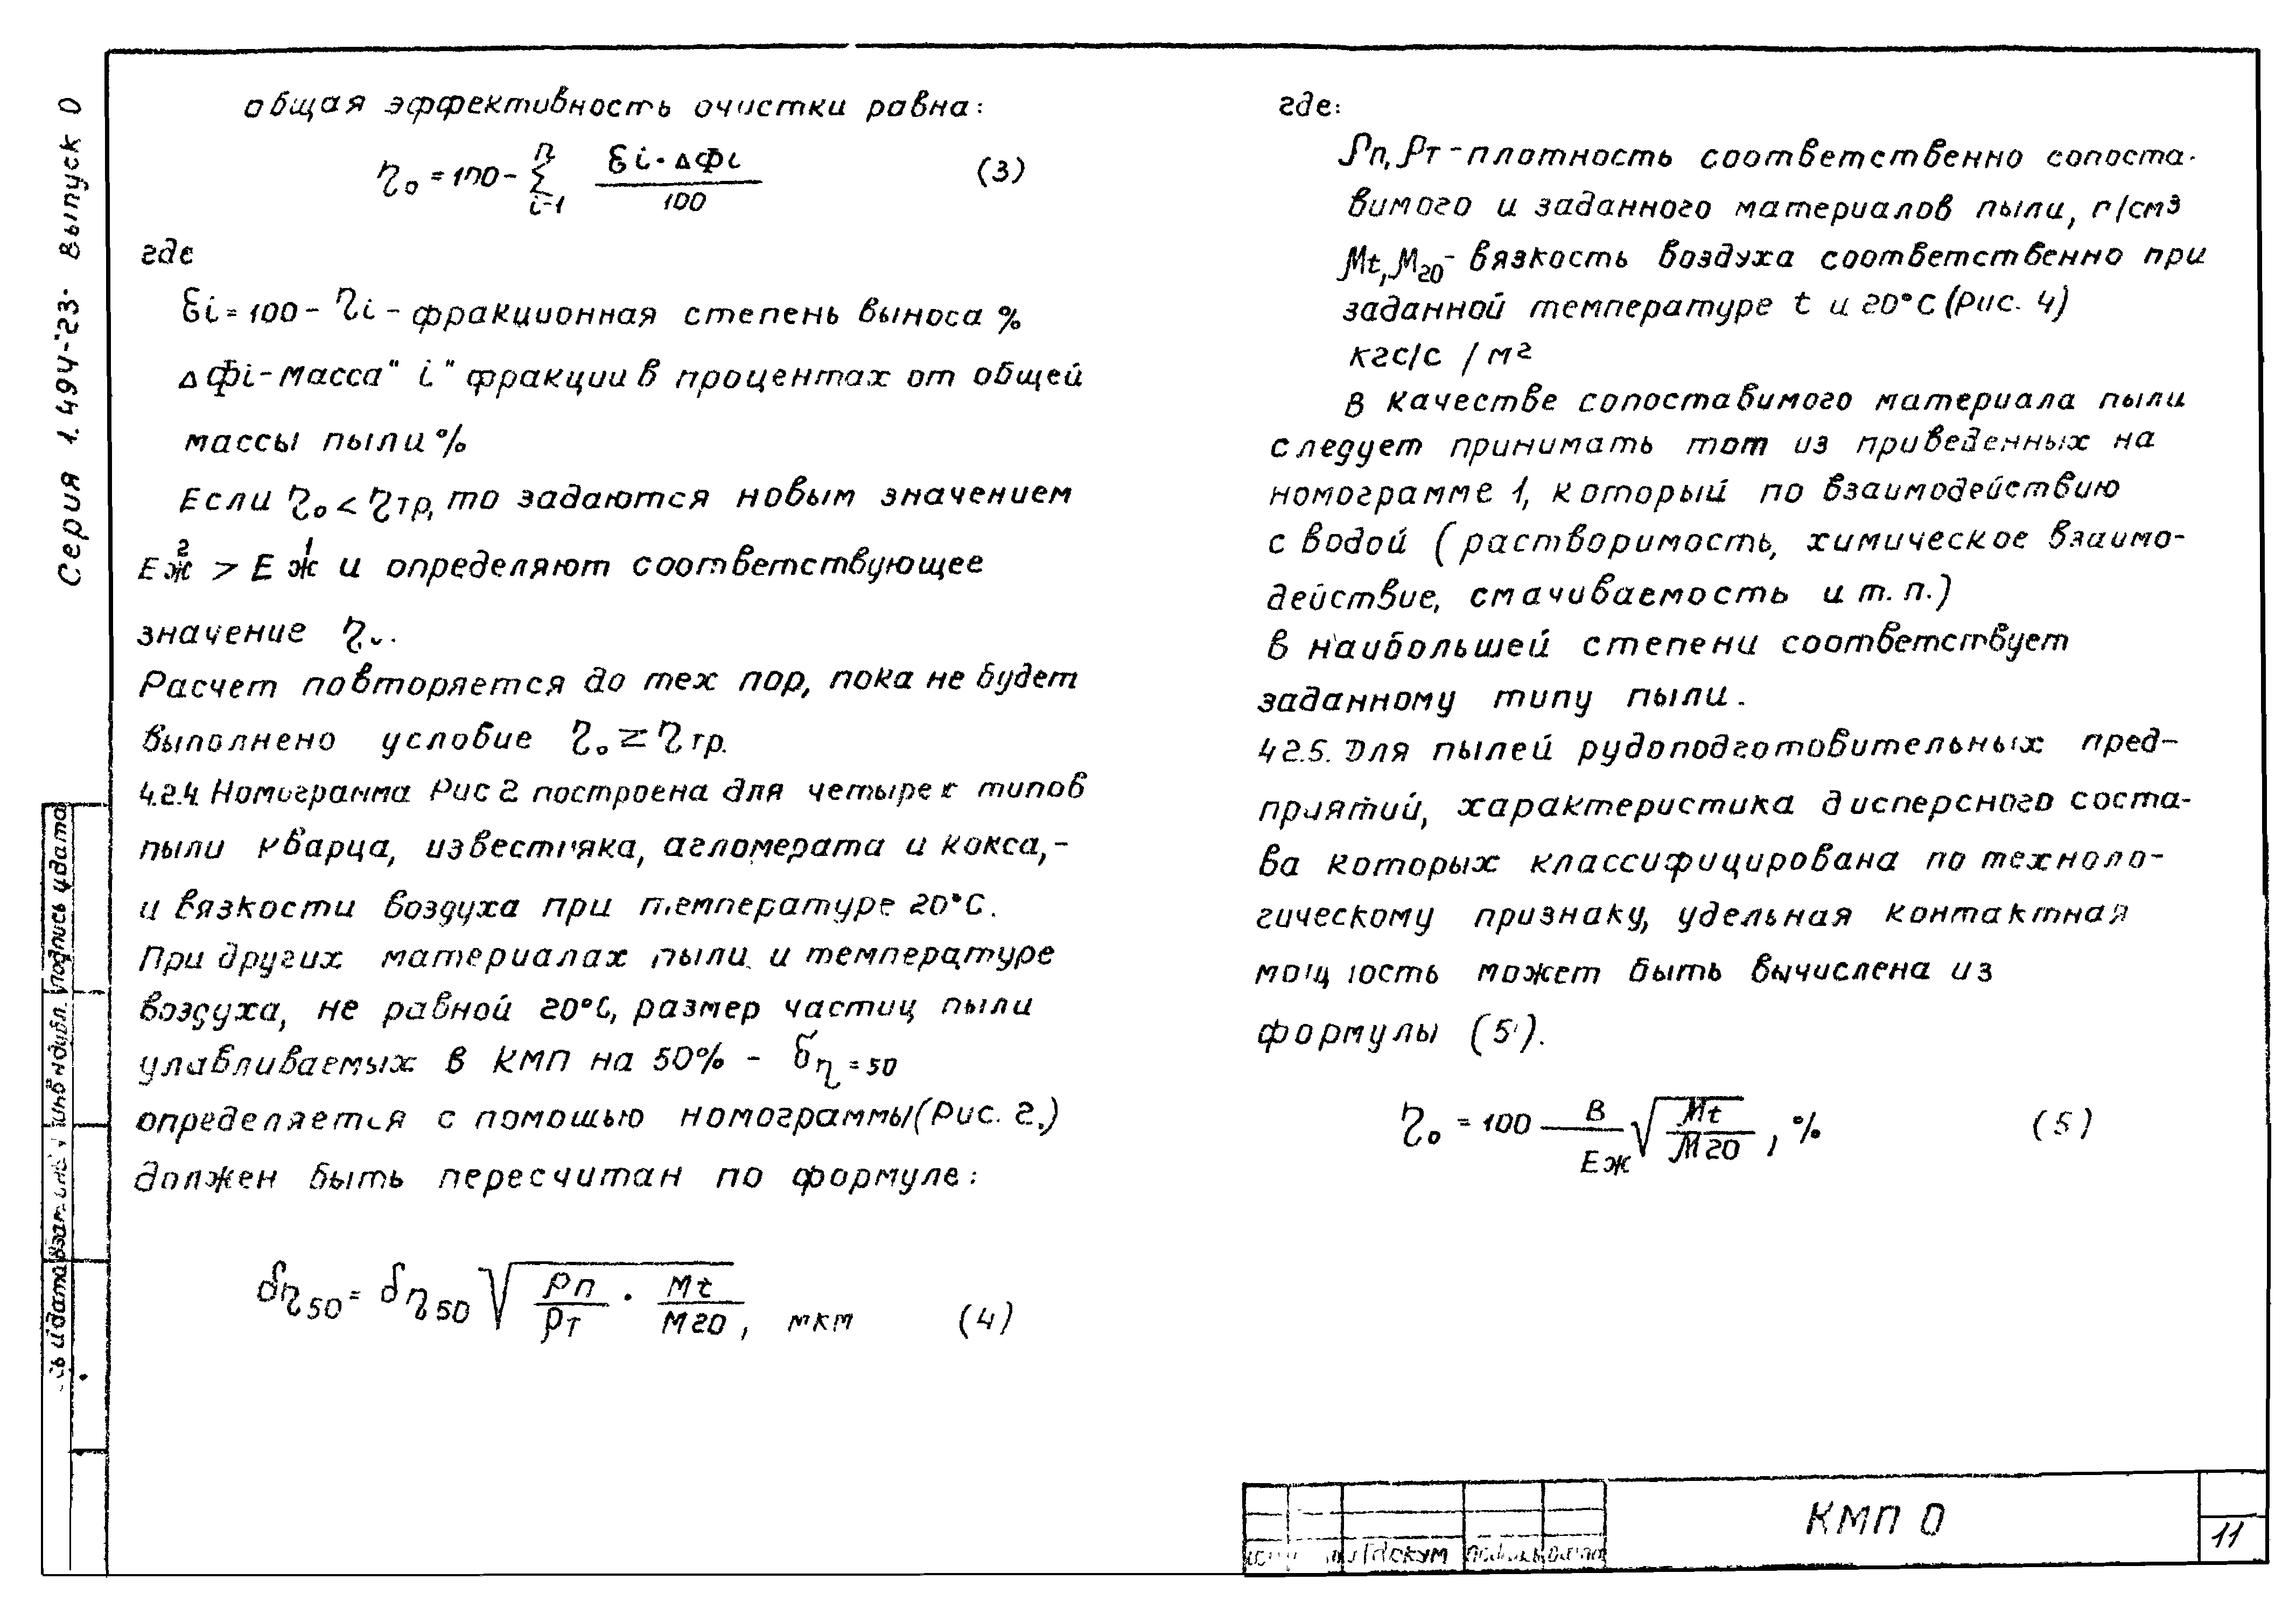 Серия 1.494-23. Выпуск 0
общая эффективность очистки равна:
η₀ = 100 - Σ (i=1, n) εi·Δфi / 100 (3)
где
εi = 100 - ηi - фракционная степень выноса %
Δфi - масса "i" фракции в процентах от общей
массы пыли %
Если η₀ < ηтр, то задаются новым значением
Eж² > Eж¹ и определяют соответствующее
значение η₀.
Расчет повторяется до тех пор, пока не будет
выполнено условие η₀ ≥ ηтр.
4.2.4. Номограмма Рис 2 построена для четырех типов
пыли кварца, известняка, агломерата и кокса,-
и вязкости воздуха при температуре 20°С.
При других материалах пыли и температуре
воздуха, не равной 20°С, размер частиц пыли
улавливаемых в КМП на 50% - δη=50
определяется с помощью номограммы (Рис. 2.)
должен быть пересчитан по формуле:
δη50 = δη50 √(ρп/ρт · Mt/M20), мкм (4)
где:
ρп, ρт - плотность соответственно сопоста-
вимого и заданного материалов пыли, г/см3
Mt, M20 - вязкость воздуха соответственно при
заданной температуре t и 20°С (Рис. 4)
кгс/с /м2
В качестве сопоставимого материала пыли
следует принимать тот из приведенных на
номограмме 1, который по взаимодействию
с водой (растворимость, химическое взаимо-
действие, смачиваемость и т.п.)
в наибольшей степени соответствует
заданному типу пыли.
4.2.5. Для пылей рудоподготовительных пред-
приятий, характеристика дисперсного соста-
ва которых классифицирована по техноло-
гическому признаку, удельная контактная
мощность может быть вычислена из
формулы (5).
η₀ = 100 B/Eж √(Mt/M20), % (5)
Подпись и дата
КМП 0
11